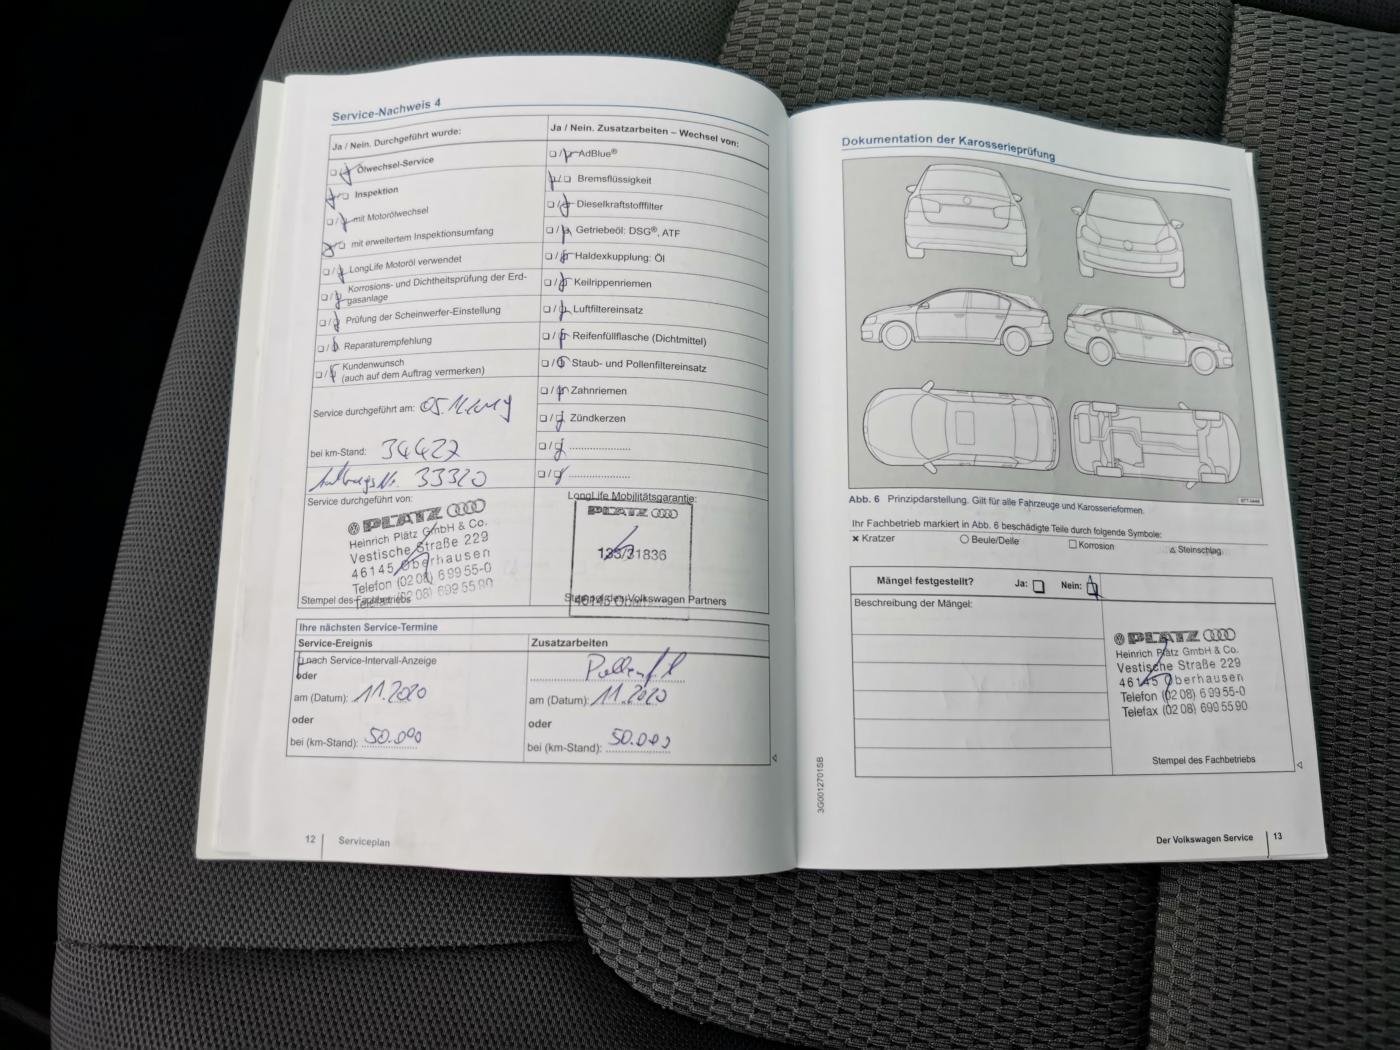 Service-Nachweis 4
Ja / Nein. Durchgeführt wurde:
Ölwechsel-Service
Inspektion
mit Motorölwechsel
mit erweitertem Inspektionsumfang
LongLife Motoröl verwendet
Korrosions- und Dichtheitsprüfung der Erd-
gasanlage
Prüfung der Scheinwerfer-Einstellung
Reparaturempfehlung
Kundenwunsch
(auch auf dem Auftrag vermerken)
Service durchgeführt am: 05.11.2019
bei km-Stand: 34427
Auftrags Nr. 33320
Service durchgeführt von:
PLATZ
Heinrich Platz GmbH & Co.
Vestische Straße 229
46145 Oberhausen
Telefon (02 08) 6 99 55-0
Telefax (02 08) 699 55 90
Stempel des Fachbetriebs
Ja / Nein. Zusatzarbeiten – Wechsel von:
AdBlue®
Bremsflüssigkeit
Dieselkraftstofffilter
Getriebeöl: DSG®, ATF
Haldexkupplung: Öl
Keilrippenriemen
Luftfiltereinsatz
Reifenfüllflasche (Dichtmittel)
Staub- und Pollenfiltereinsatz
Zahnriemen
Zündkerzen
LongLife Mobilitätsgarantie:
PLATZ
/31836
46145
Stempel des Volkswagen Partners
Ihre nächsten Service-Termine
Service-Ereignis
nach Service-Intervall-Anzeige
oder
am (Datum): 11.2020
oder
bei (km-Stand): 50.000
Zusatzarbeiten
am (Datum): 11.2020
oder
bei (km-Stand): 50.000
12 Serviceplan
Dokumentation der Karosserieprüfung
Abb. 6 Prinzipdarstellung. Gilt für alle Fahrzeuge und Karosserieformen.
Ihr Fachbetrieb markiert in Abb. 6 beschädigte Teile durch folgende Symbole:
Kratzer Beule/Delle Korrosion Steinschlag
Mängel festgestellt? Ja: Nein:
Beschreibung der Mängel:
PLATZ
Heinrich Platz GmbH & Co.
Vestische Straße 229
46145 Oberhausen
Telefon (02 08) 6 99 55-0
Telefax (02 08) 699 55 90
Stempel des Fachbetriebs
3G0012701SB
Der Volkswagen Service 13